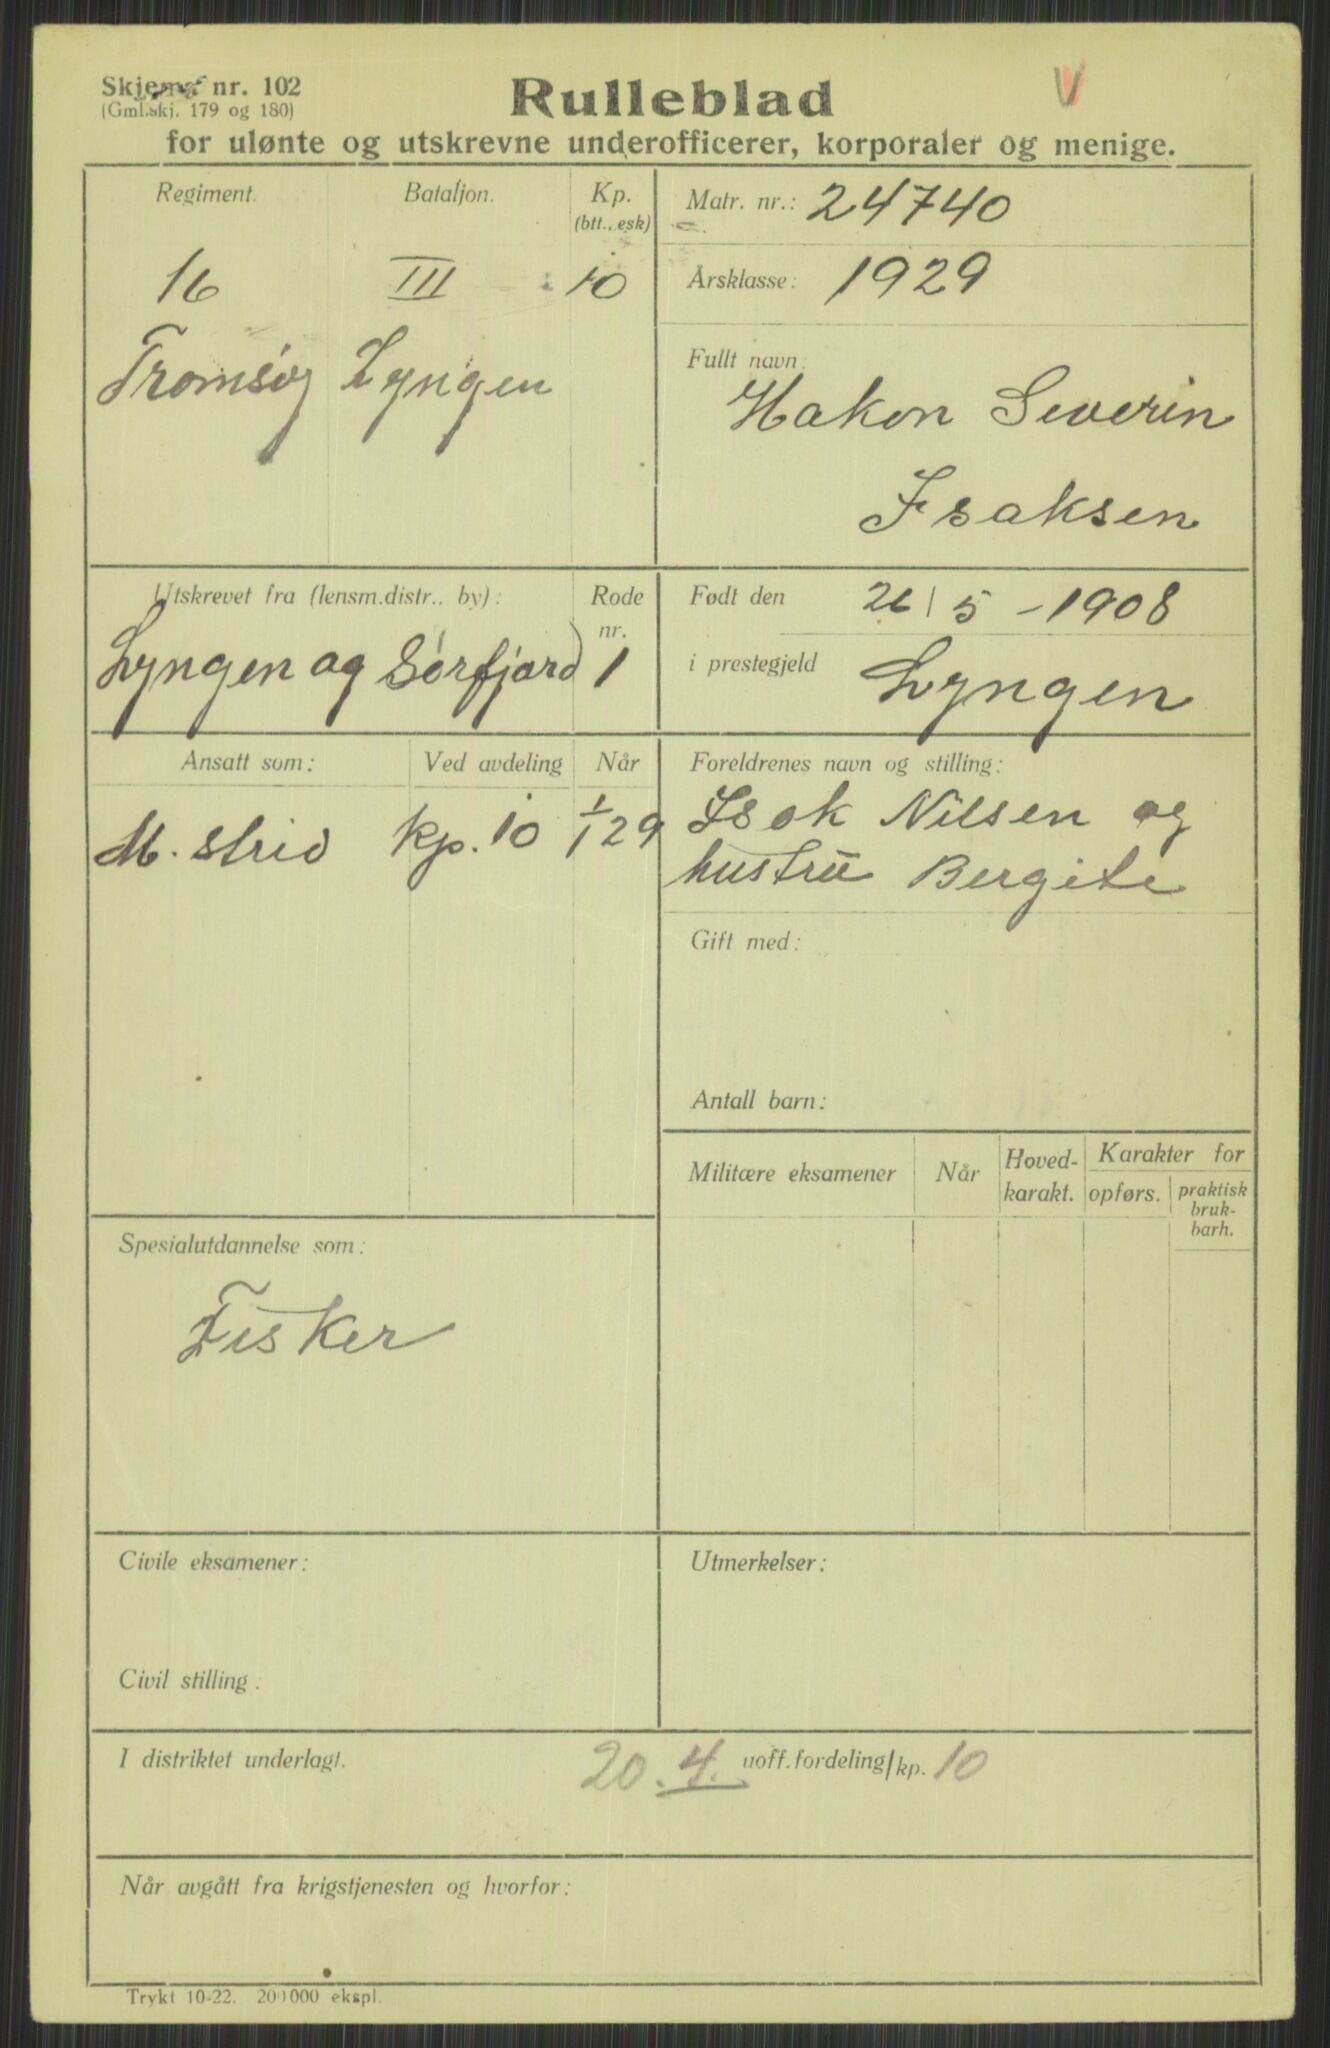 Skjema nr. 102
(Gml.skj. 179 og 180)
Rulleblad
V
for ulønte og utskrevne underofficerer, korporaler og menige.
Regiment. Bataljon. Kp.
(btt., esk)
16 III 10
Tromsøy Lyngen
Matr. nr.: 24740
Årsklasse: 1929
Fullt navn:
Hakon Severin
Isaksen
Utskrevet fra (lensm.distr.. by): Rode
nr.
Lyngen og Sørfjord 1
Født den 26/5-1908
i prestegjeld Lyngen
Ansatt som: Ved avdeling Når
M. strid kp. 10 1/1 29
Foreldrenes navn og stilling:
Isak Nilsen og
hustru Bergite
Gift med:
Antall barn:
Militære eksamener Når Hoved-
karakt. Karakter for
opførs. praktisk
bruk-
barh.
Spesialutdannelse som:
Fisker
Civile eksamener:
Civil stilling:
Utmerkelser:
I distriktet underlagt. 20.4. uoff.fordeling/kp. 10
Når avgått fra krigstjenesten og hvorfor:
Trykt 10-22. 200000 ekspl.